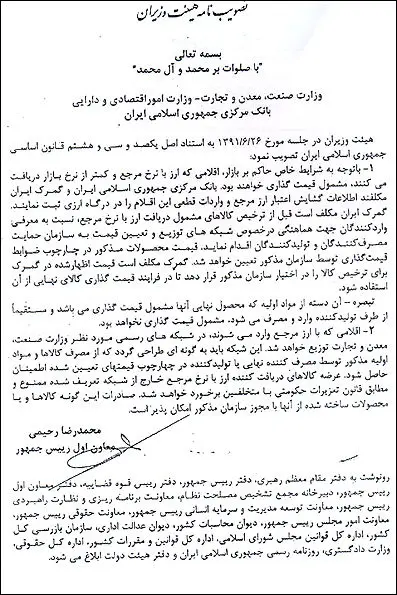 تصویب نامه هیئت وزیران
بسمه تعالی
"با صلوات بر محمد و آل محمد"
وزارت صنعت، معدن و تجارت- وزارت امور اقتصادی و دارایی
بانک مرکزی جمهوری اسلامی ایران
هیئت وزیران در جلسه مورخ ۱۳۹۱/۶/۲۶ به استناد اصل یکصد و سی و هشتم قانون اساسی
جمهوری اسلامی ایران تصویب نمود:
۱-باتوجه به شرایط خاص حاکم بر بازار، اقلامی که ارز با نرخ مرجع و کمتر از نرخ بازار دریافت
می کنند، مشمول قیمت گذاری خواهند بود. بانک مرکزی جمهوری اسلامی ایران و گمرک ایران
مکلفند اطلاعات گشایش اعتبار ارز مرجع و واردات قطعی این اقلام را در درگاه ارزی ثبت نمایند.
گمرک ایران مکلف است قبل از ترخیص کالاهای مشمول دریافت ارز با نرخ مرجع، نسبت به معرفی
واردکنندگان جهت هماهنگی درخصوص شبکه های توزیع و تعیین قیمت به سازمان حمایت
مصرف‌کنندگان و تولیدکنندگان اقدام نماید. قیمت محصولات مذکور در چارچوب ضوابط
قیمت‌گذاری توسط سازمان مذکور تعیین خواهد شد. گمرک مکلف است قیمت اظهارشده در گمرک
برای ترخیص کالا را در اختیار سازمان مذکور قرار دهد تا در فرایند قیمت گذاری کالای نهایی از آن
استفاده شود.
تبصره – آن دسته از مواد اولیه که محصول نهایی آنها مشمول قیمت گذاری می باشد و مستقیماً
از طرف تولیدکننده وارد و مصرف می شود، مشمول قیمت گذاری نخواهد بود.
۲- اقلامی که با ارز مرجع وارد می شوند، در شبکه های رسمی مورد نظر وزارت صنعت،
معدن و تجارت توزیع خواهد شد. این شبکه باید به گونه ای طراحی گردد که از مصرف کالاها و مواد
اولیه مذکور توسط مصرف کننده نهایی یا تولیدکننده در چهارچوب قیمتهای تعیین شده اطمینان
حاصل شود. عرضه کالاهای دریافت کننده ارز با نرخ مرجع خارج از شبکه تعریف شده ممنوع و
مطابق قانون تعزیرات حکومتی با متخلفین برخورد خواهد شد. صادرات این گونه کالاها و یا
محصولات ساخته شده از آنها با مجوز سازمان مذکور امکان پذیر است.
محمدرضا رحیمی
معاون اول رییس جمهور
رونوشت به دفتر مقام معظم رهبری، دفتر رییس جمهور، دفتر رییس قوه قضاییه، دفتر معاون اول
رییس جمهور، دبیرخانه مجمع تشخیص مصلحت نظام، معاونت برنامه ریزی و نظارت راهبردی
رییس جمهور، معاونت توسعه مدیریت و سرمایه انسانی رییس جمهور، معاونت حقوقی رییس جمهور،
معاونت امور مجلس رییس جمهور، دیوان محاسبات کشور، دیوان عدالت اداری، سازمان بازرسی کل
کشور، اداره کل قوانین مجلس شورای اسلامی، اداره کل قوانین و مقررات کشور، اداره کل حقوقی،
وزارت دادگستری، روزنامه رسمی جمهوری اسلامی ایران و دفتر هیئت دولت ابلاغ می شود.